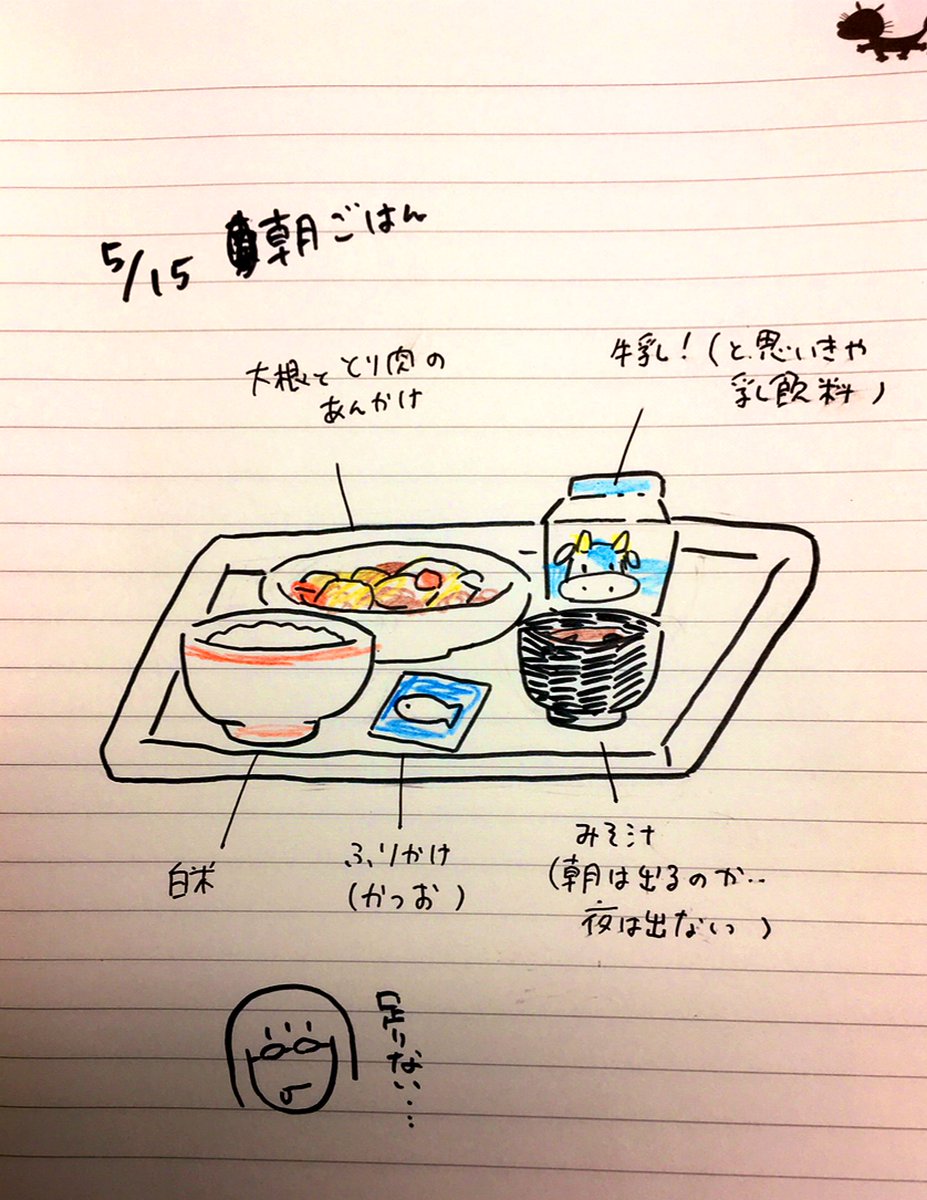 5/15 朝ごはん
大根ととり肉の
あんかけ
牛乳!(と思いきや
乳飲料)
白米
ふりかけ
(かつお)
みそ汁
(朝は出るのか..
夜は出ないっ)
足りない...